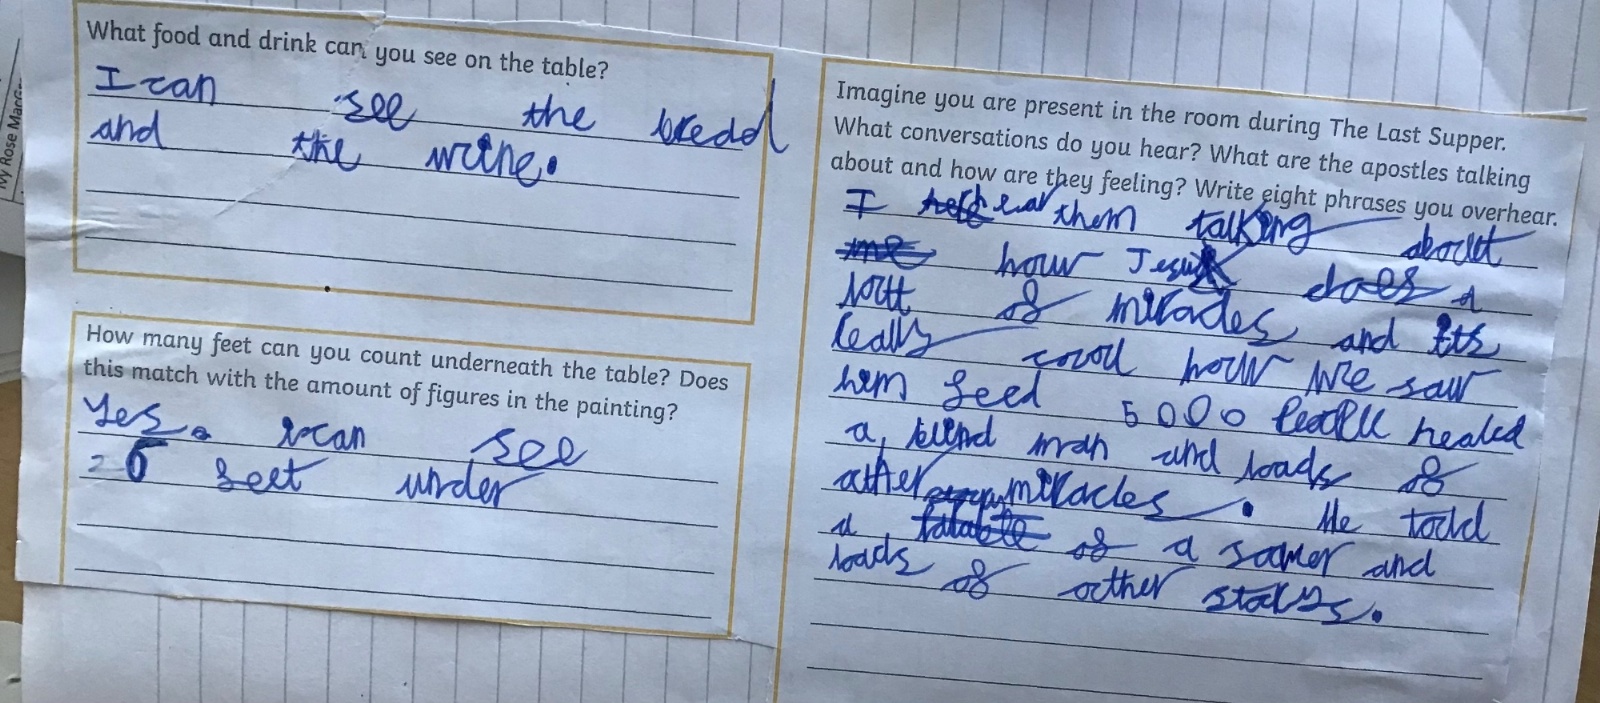 What food and drink can you see on the table?
I can see the bread
and the wine.
How many feet can you count underneath the table? Does
this match with the amount of figures in the painting?
Yes. I can see
26 feet under
Imagine you are present in the room during The Last Supper.
What conversations do you hear? What are the apostles talking
about and how are they feeling? Write eight phrases you overhear.
I hear them talking about
me how Jesus does a
lott of miracles and its
really cool how we saw
him feed 5000 people healed
a blind man and loads of
other miracles. He told
a of a sower and
loads of other storys.